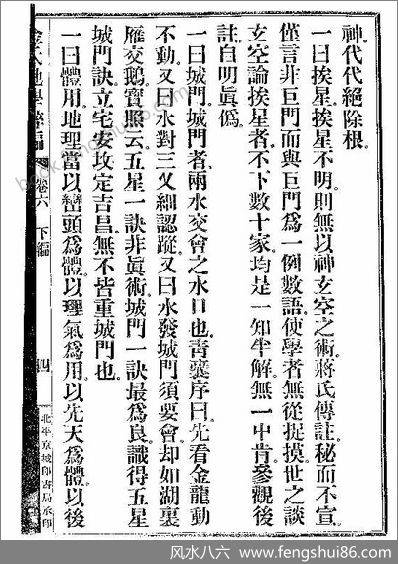 神代代絕除根。
一曰挨星。挨星不明。則無以神玄空之術。蔣氏傳註。秘而不宣。
僅言非巨門而與巨門爲一例數語。使學者無從捉摸。世之談
玄空論挨星者。不下數十家。均是一知半解。無一中肯。參觀後
註。自明眞僞。
一曰城門。城門者。兩水交會之水口也。靑囊序曰。先看金龍動
不動。又曰水對三叉細認蹤。又曰水發城門須要會。却如湖裏
雁交鵝。寶照云。五星一訣非眞術。城門一訣最爲良。識得五星
城門訣。立宅安墳定吉昌。無不皆重城門也。
一曰體用。地理當以巒頭爲體。以理氣爲用。以先天爲體。以後
地學
卷六 下編
四
北平京城印書局承印
风水八六：www.fengshui86.com